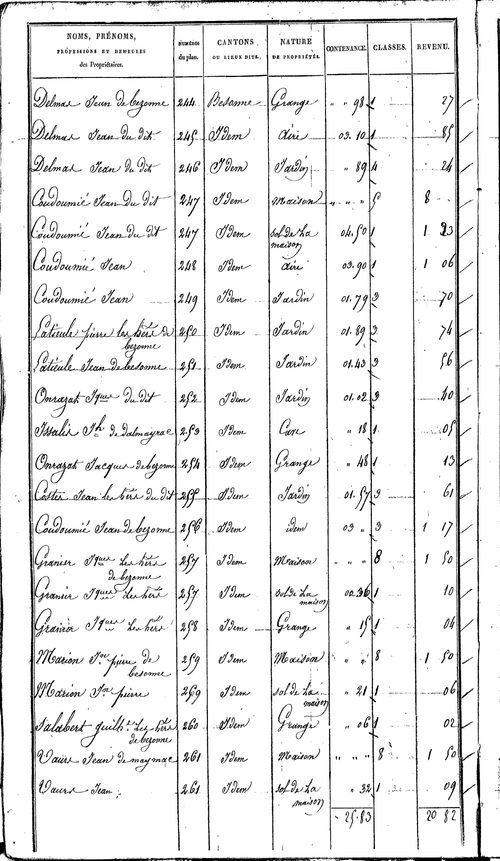 NOMS, PRÉNOMS, PROFESSIONS ET DEMEURES des Propriétaires. NUMÉROS du plan. CANTONS OU LIEUX DITS. NATURE DE PROPRIÉTÉS. CONTENANCE. CLASSES. REVENU.
Delmas Jean de bezonne 244 Besonne Grange " " 98 1 27
Delmas Jean du dit 245 Idem aire 03.10 1 85
Delmas Jean du dit 246 Idem Jardin " 89 4 24
Coudoumié Jean du dit 247 Idem Maison " " " 5 8
Coudoumié Jean du dit 247 Idem sol de La maison 04.50 1 1 23
Coudoumié Jean 248 Idem aire 03.90 1 1 06
Coudoumié Jean 249 Idem Jardin 01.79 3 70
pierre les hérs de bezonne 250 Idem Jardin 01.89 3 74
Jean de besonne 251 Idem Jardin 01.43 3 56
Onrazat Jques du dit 252 Idem Jardin 01.02 3 40
Issalis Jh de dalmayrac 253 Idem Cave " 18 1 05
Onrazat Jacques de bezonne 254 Idem Grange " 48 1 13
Coster Jean les hérs du dit 255 Idem Jardin 01.57 3 61
Coudoumié Jean de bezonne 256 Idem idem 03 " 3 1 17
Granier Jques Les hérs de bezonne 257 Idem Maison " " 8 1 50
Granier Jques Les hérs 257 Idem sol de La maison 00.36 1 10
Granier Jques Les hérs 258 Idem Grange " 15 1 04
Marion pierre de besonne 259 Idem Maison " " 8 1 50
Marion pierre 269 Idem sol de La maison " 21 1 06
Salabert guilhe Les hérs de bezonne 260 Idem Grange " 06 1 02
Vaurs Jean de maymac 261 Idem Maison " " " 8 1 50
Vaurs Jean 261 Idem sol de La maison " 32 1 09
25.83 20 82